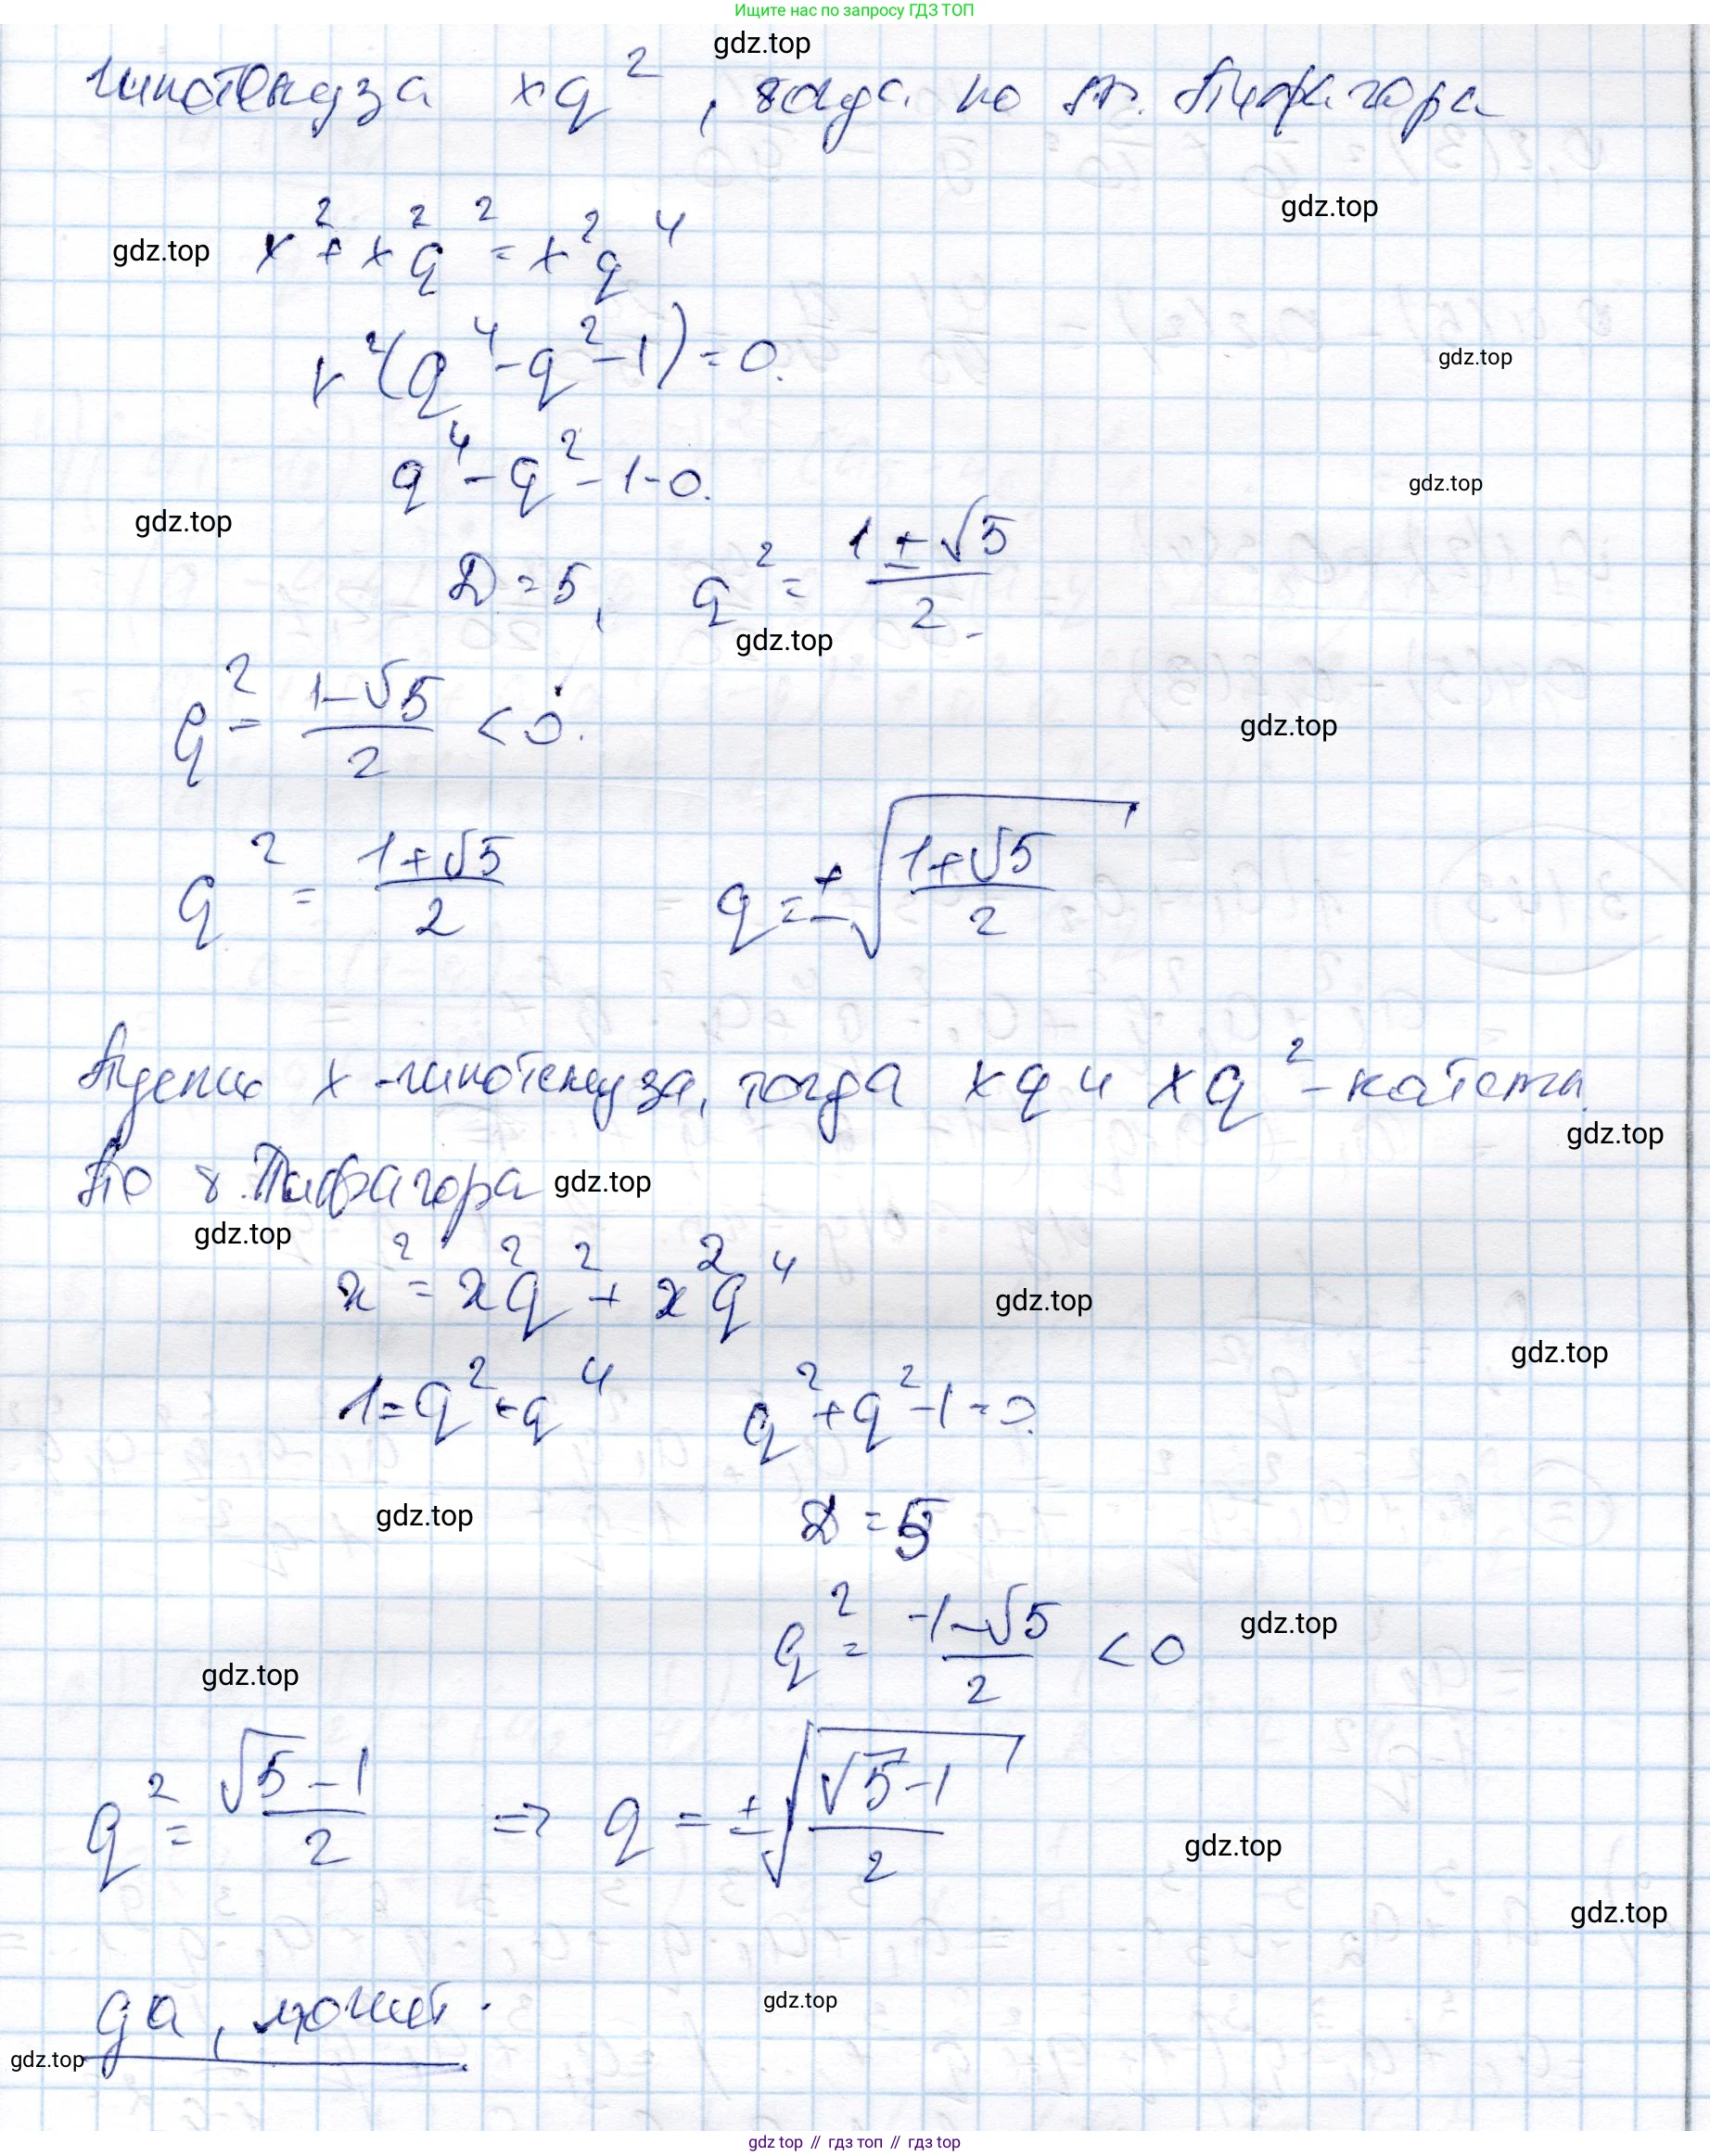 Ищите нас по запросу ГДЗ ТОП
gdz.top
гипотенуза xq², тогда по т. Пифагора
gdz.top
gdz.top
x² + x²q² = x²q⁴
x²(q⁴ - q² - 1) = 0.
gdz.top
q⁴ - q² - 1 = 0.
gdz.top
gdz.top
D = 5, q² = (1 ± √5)/2.
gdz.top
q² = (1 - √5)/2 < 0.
gdz.top
q² = (1 + √5)/2 q = ± √((1 + √5)/2)
Пусть x - гипотенуза, тогда xq и xq² - катеты.
gdz.top
По т. Пифагора
gdz.top
gdz.top
x² = x²q² + x²q⁴
gdz.top
gdz.top
1 = q² + q⁴ q² + q² - 1 = 0.
gdz.top
D = 5
q² = (-1 - √5)/2 < 0
gdz.top
gdz.top
q² = (√5 - 1)/2 => q = ± √((√5 - 1)/2)
gdz.top
gdz.top
да, может.
gdz.top
gdz.top
gdz top // гдз топ // гдз top